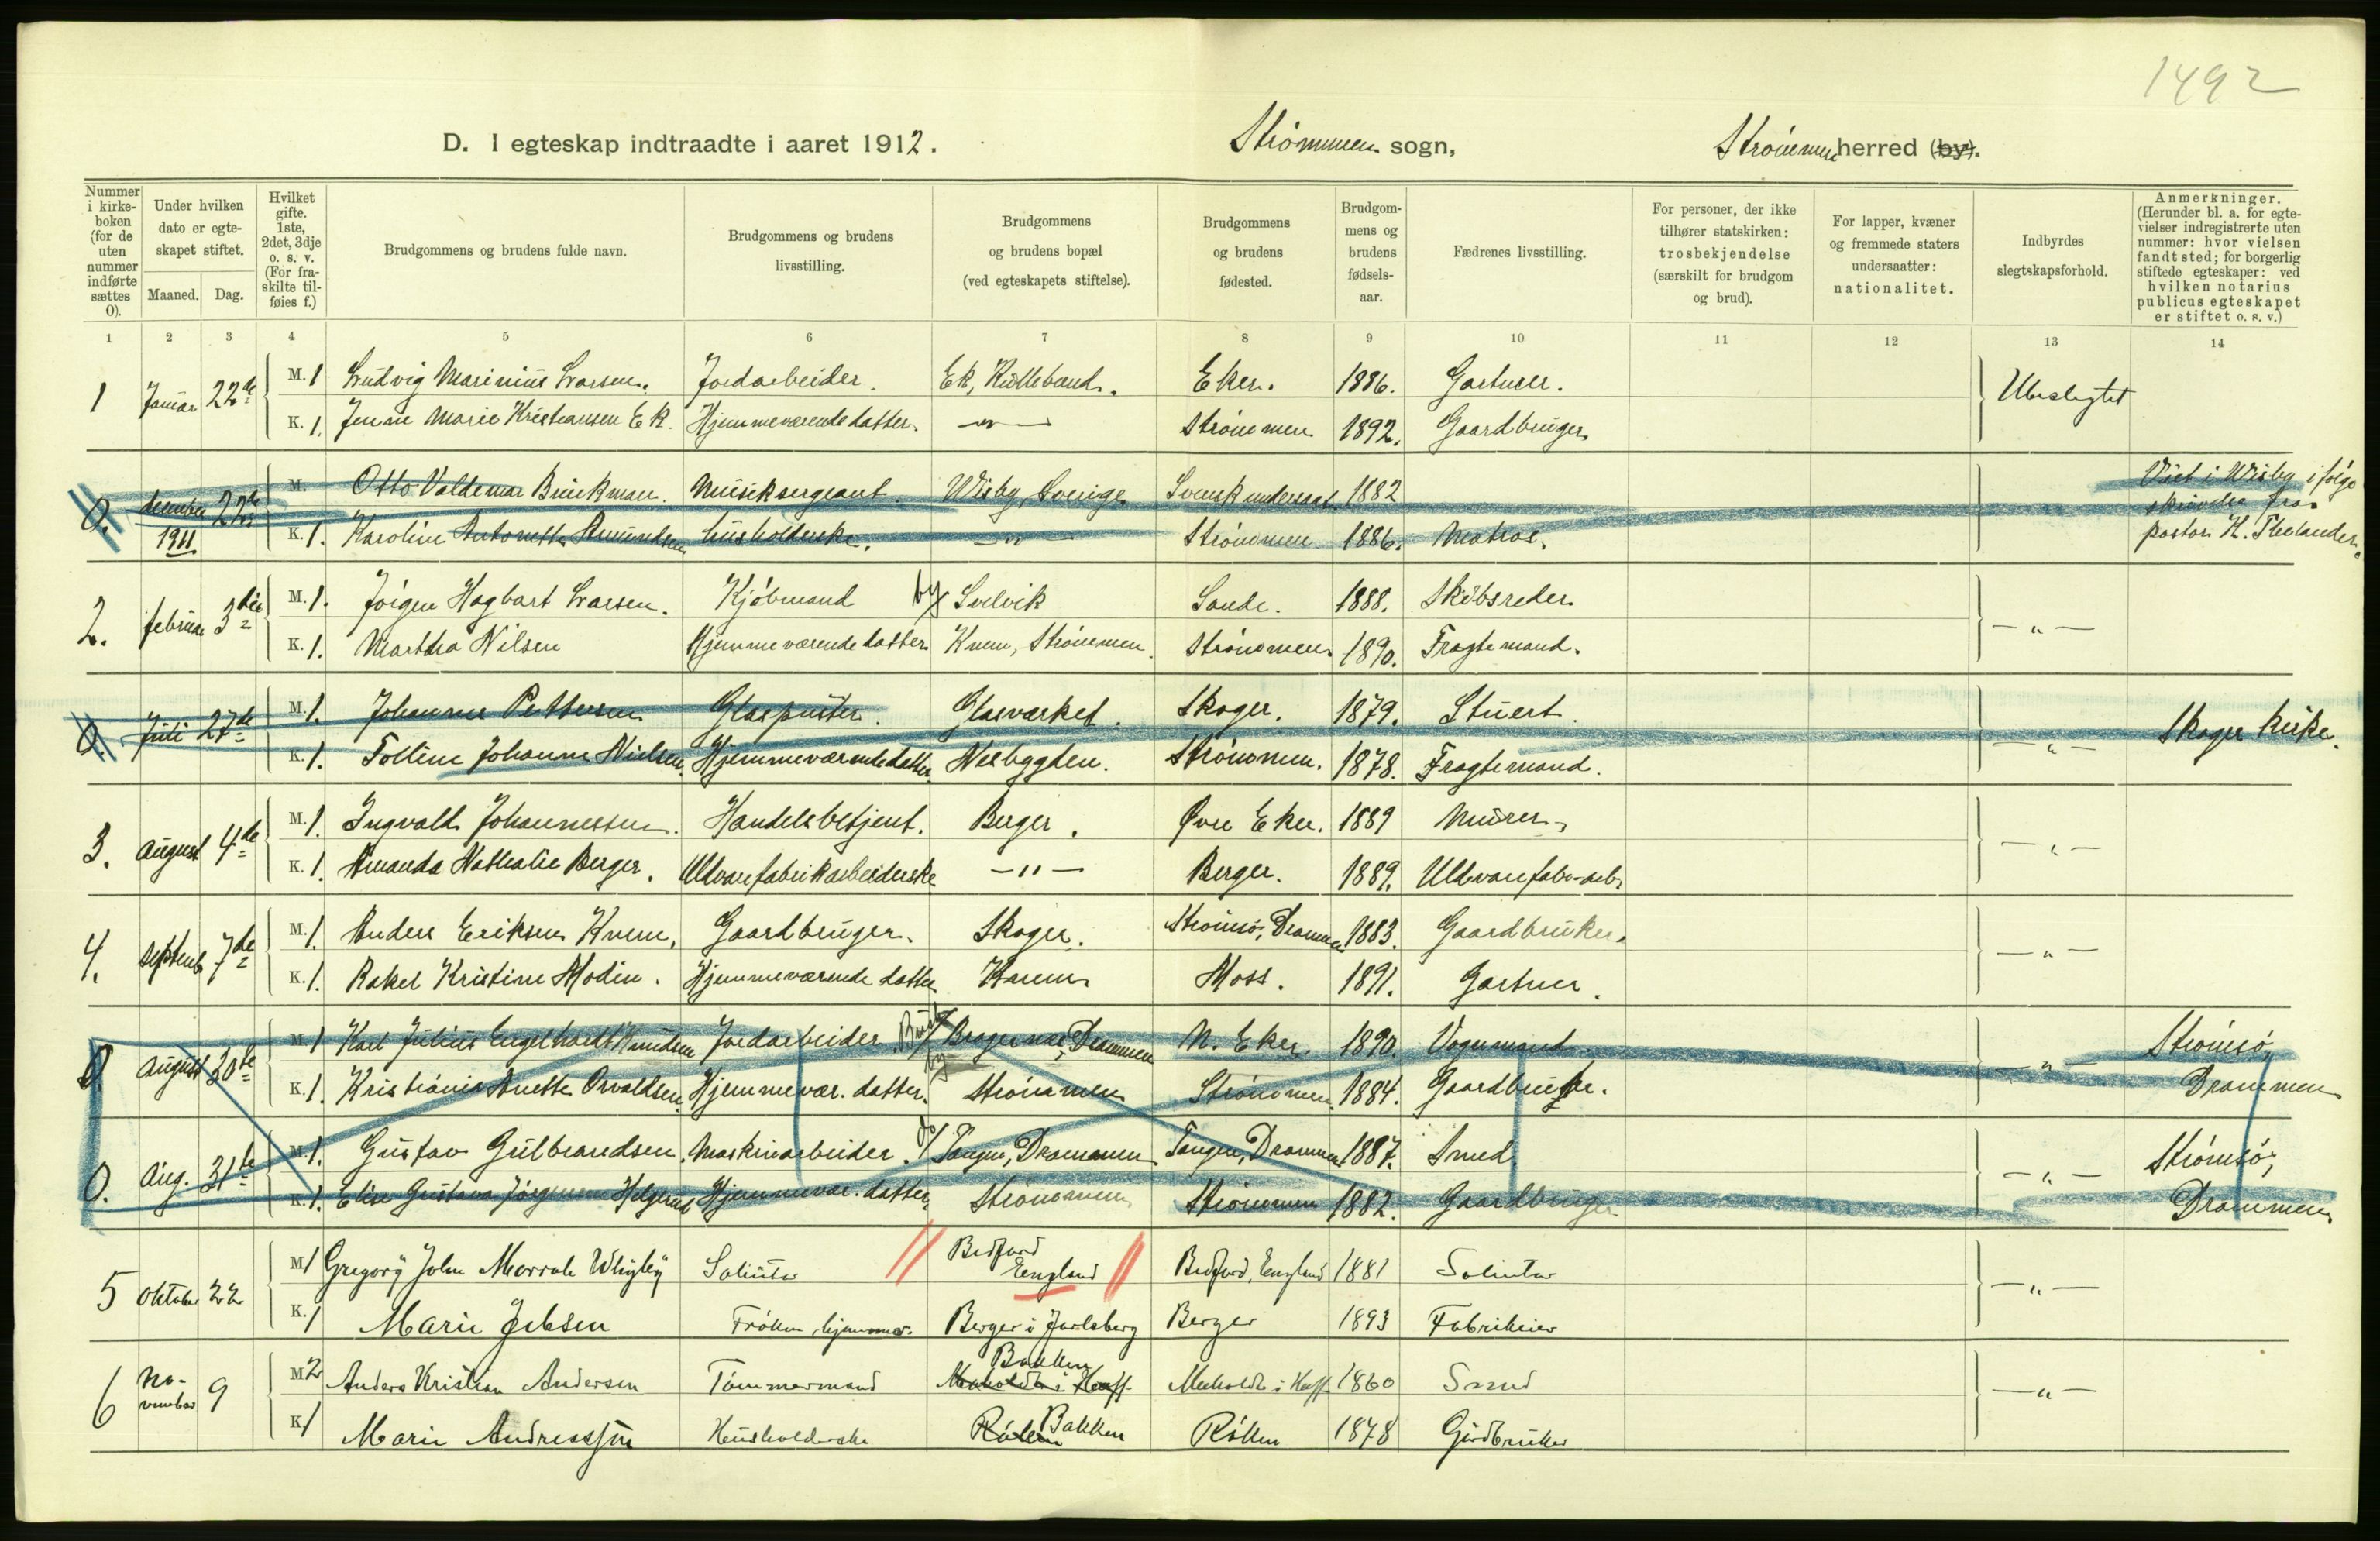 1492
D. I egteskap indtraadte i aaret 1912. Strömmen sogn, Strömmen herred (by).
Nummer i kirkeboken (for de uten nummer indførte sættes 0).
Under hvilken dato er egteskapet stiftet.
Maaned. Dag.
Hvilket gifte. 1ste, 2det, 3dje o. s. v. (For fraskilte tilføies f.)
Brudgommens og brudens fulde navn.
Brudgommens og brudens livsstilling.
Brudgommens og brudens bopæl (ved egteskapets stiftelse).
Brudgommens og brudens fødested.
Brudgommens og brudens fødselsaar.
Fædrenes livsstilling.
For personer, der ikke tilhører statskirken: trosbekjendelse (særskilt for brudgom og brud).
For lapper, kvæner og fremmede staters undersaatter: nationalitet.
Indbyrdes slegtskapsforhold.
Anmerkninger. (Herunder bl. a. for egtevielser indregistrerte uten nummer: hvor vielsen fandt sted; for borgerlig stiftede egteskaper: ved hvilken notarius publicus egteskapet er stiftet o. s. v.)
1 2 3 4 5 6 7 8 9 10 11 12 13 14
1 Januar 22de M. 1 Ludvig Marinius Larsen. Jordarbeider. Ek, Kullebund. Eker. 1886. Gartner. Ubeslegtet
K. 1. Jenne Marie Kristiansen Ek. Hjemmeværende datter. —"— Strömmen 1892. Gaardbruger
0. december 1911 22de M. Otto Valdemar Brinkman. Musiksergeant. Wisby, Sverige Svensk undersaat 1882 Viet i Wisby ifölge skrivelse fra pastor K. Thelander.
K. 1. Karoline Antonette Amundsen husholderske. —"— Strömmen 1886. Matros.
2. februar 3die M. 1. Jörgen Hagbart Larsen. Kjöbmand by/ Svelvik Sande. 1888. Skibsreder —"—
K. 1. Martha Nilsen Hjemmeværende datter Knem, Strömmen. Strömmen 1890. Fragtemand.
0. Juli 27de M. 1. Johannes Pettersen Glaspuster. Glasværket. Skoger. 1879. Stuert. —"— Skoger kirke.
K. 1. Tolline Johanne Nielsen. Hjemmeværende datter. Nesbygden. Strömmen. 1878. Fragtemand.
3. august 4de M. 1. Ingvald Johannessen. Handelsbetjent. Berger. Øvre Eker. 1889 Murer, —"—
K. 1. Amanda Nathalie Berger. Uldvarefabrikarbeiderske —"— Berger. 1889. Uldvarefabr-arb.
4. septemb 7de M. 1. Anders Eriksen Knem, Gaardbruger. Skoger. Strömsö, Drammen 1883. Gaardbruker. —"—
K. 1. Rakel Kristine Modin. Hjemmeværende datter Knem. Moss. 1891. Gartner.
0. august 30te M. 1 Karl Julius Engelhardt Knudsen Jordarbeider. by/ Bragernæs, Drammen N. Eker. 1890. Vognmand. —"— Strömsö, Drammen
K. 1. Kristiania Anette Osvaldsen. Hjemmevær. datter. Strömmen Strömmen. 1884. Gaardbruger.
0. Aug. 31te M. 1. Gustav Gulbrandsen. Maskinarbeider. do/ Tangen, Drammen Tangen, Drammen 1887. Smed. —"— Strömsö, Drammen
K. 1. Elise Gustava Jörgensen Helgerud Hjemmevær. datter, Strömmen Strömmen 1882. Gaardbruger
5 Oktober 22 M. 1 Gregory John Marrale Whyley Solicitor // Bedford England // Bedford, England 1881 Solicitor —"—
K. 1 Marie Jebsen Fröken, hjemmev. Berger i Jarlsberg Berger 1893 Fabrikeier
6 November 9 M. 2 Anders Kristian Andersen Tömmermand Bakken Meholdt i Hoff Meholdt i Hoff 1860 Smed —"—
K. 1 Marie Andreassen Husholderske Röken Bakken Röken 1878 Gårdbruker